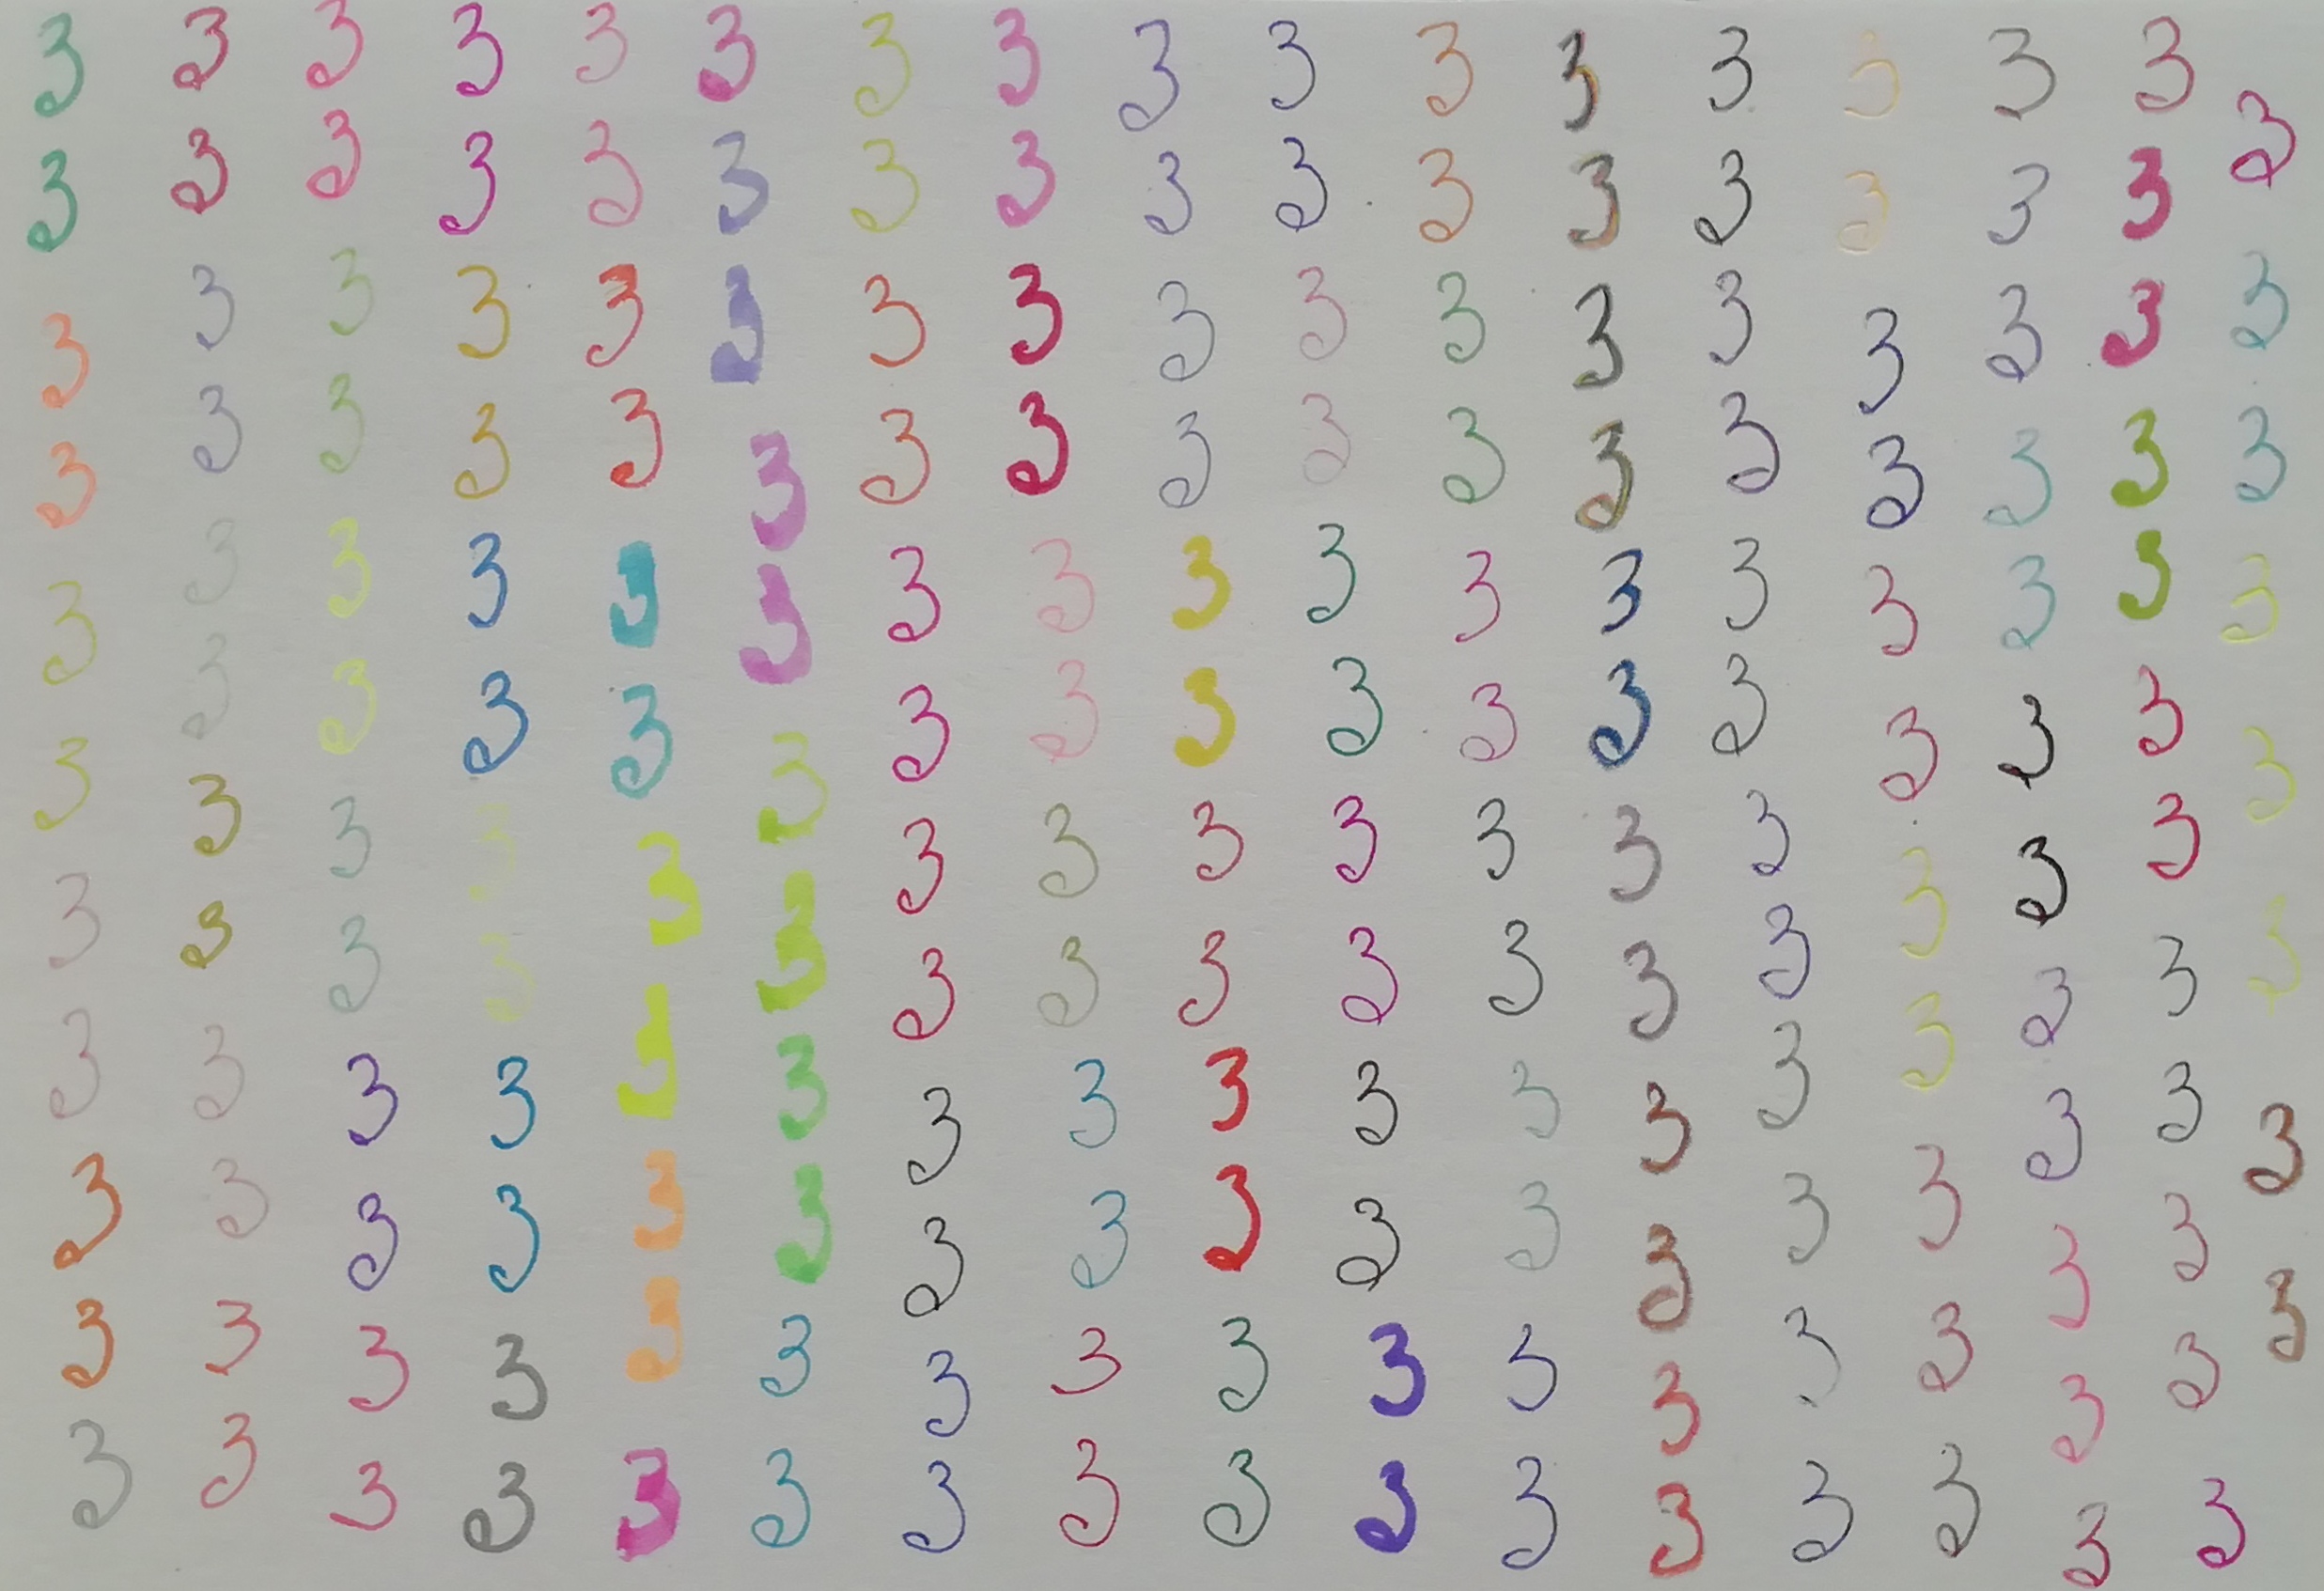 3 3 3 3 3 3 3 3 3 3 3 3 3 3 3 3 3
3 3 3 3 3 3 3 3 3 3 3 3 3 3 3 3 3
3 3 3 3 3 3 3 3 3 3 3 3 3 3 3 3 3
3 3 3 3 3 3 3 3 3 3 3 3 3 3 3 3 3
3 3 3 3 3 3 3 3 3 3 3 3 3 3 3 3 3
3 3 3 3 3 3 3 3 3 3 3 3 3 3 3 3 3
3 3 3 3 3 3 3 3 3 3 3 3 3 3 3 3 3
3 3 3 3 3 3 3 3 3 3 3 3 3 3 3 3 3
3 3 3 3 3 3 3 3 3 3 3 3 3 3 3 3
3 3 3 3 3 3 3 3 3 3 3 3 3 3 3 3
3 3 3 3 3 3 3 3 3 3 3 3 3 3 3 3
3 3 3 3 3 3 3 3 3 3 3 3 3